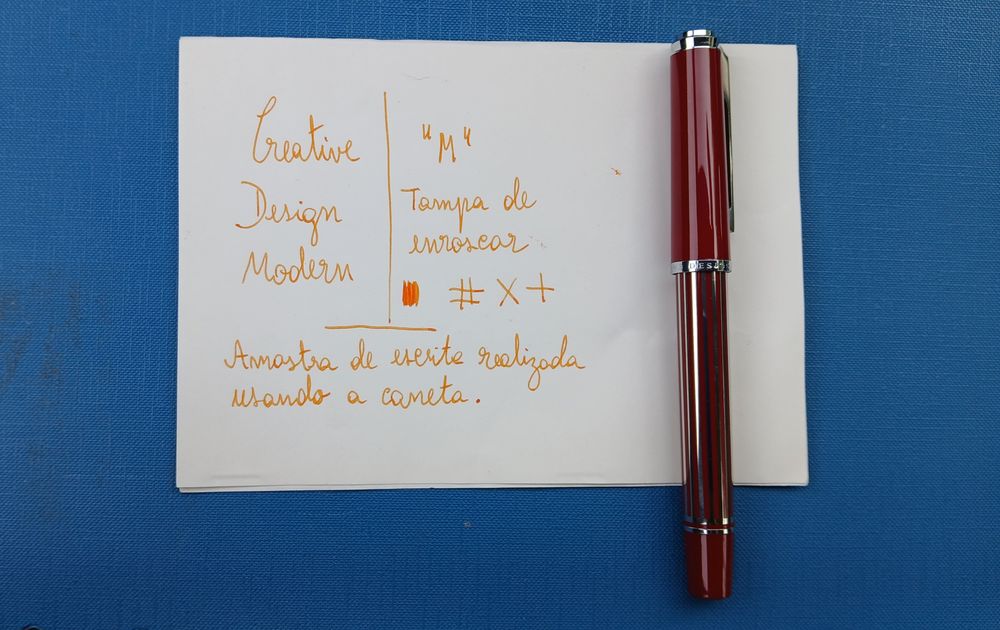 Creative
Design
Modern
"M"
Tampa de
enroscar
# X +
Amostra de escrita realizada
usando a caneta.